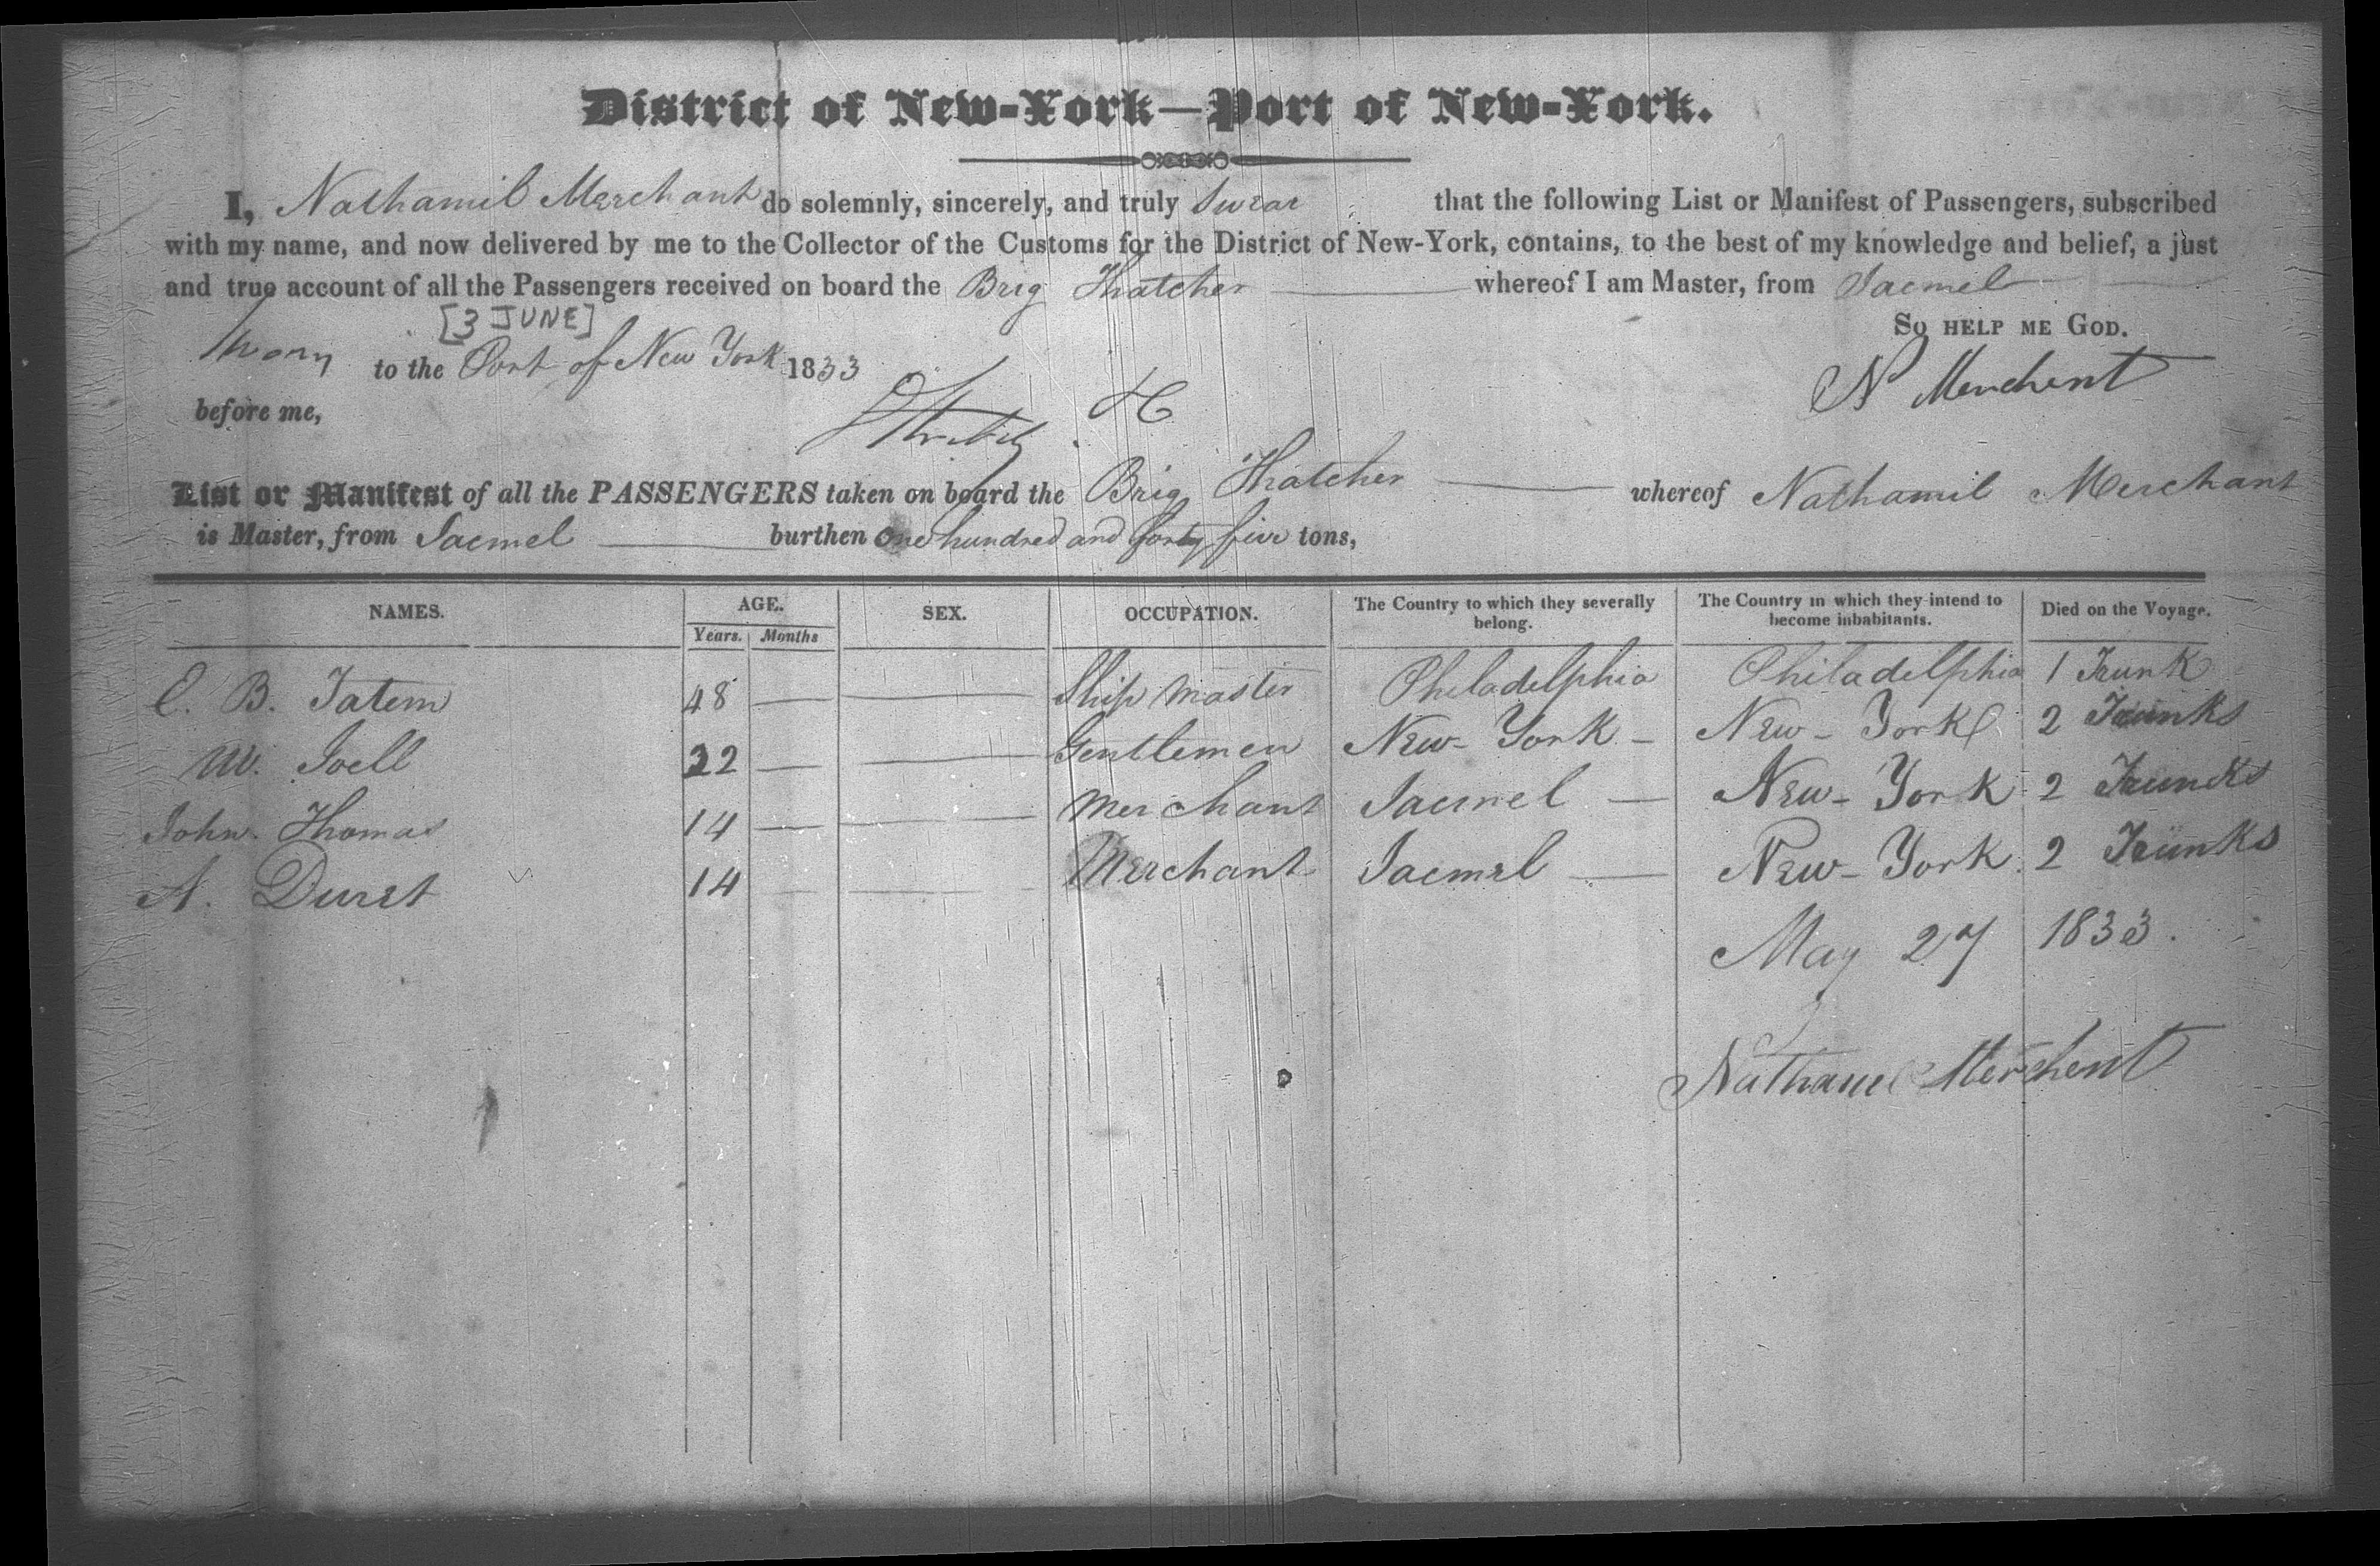 District of New-York—Port of New-York.
I, Nathamil Merchant do solemnly, sincerely, and truly Swear that the following List or Manifest of Passengers, subscribed
with my name, and now delivered by me to the Collector of the Customs for the District of New-York, contains, to the best of my knowledge and belief, a just
and true account of all the Passengers received on board the Brig Thatcher whereof I am Master, from Jacmel
[3 JUNE]
So HELP ME GOD.
to the Port of New York 1833
N Merchent
before me,
List or Manifest of all the PASSENGERS taken on board the Brig Thatcher whereof Nathamil Merchant
is Master, from Jacmel burthen One hundred and forty five tons,
NAMES. AGE. Years. Months SEX. OCCUPATION. The Country to which they severally belong. The Country in which they intend to become inhabitants. Died on the Voyage.
C. B. Tatem 48 — — Ship Master Philadelphia Philadelphia 1 Trunk
W. Joell 22 — — Gentlemen New-York - New-York 2 Trunks
John Thomas 14 — — Merchant Jacmel — New-York 2 Truncks
A. Duret 14 — — Merchant Jacmel — New-York 2 Trunks
May 27 1833.
Nathaniel Merchent